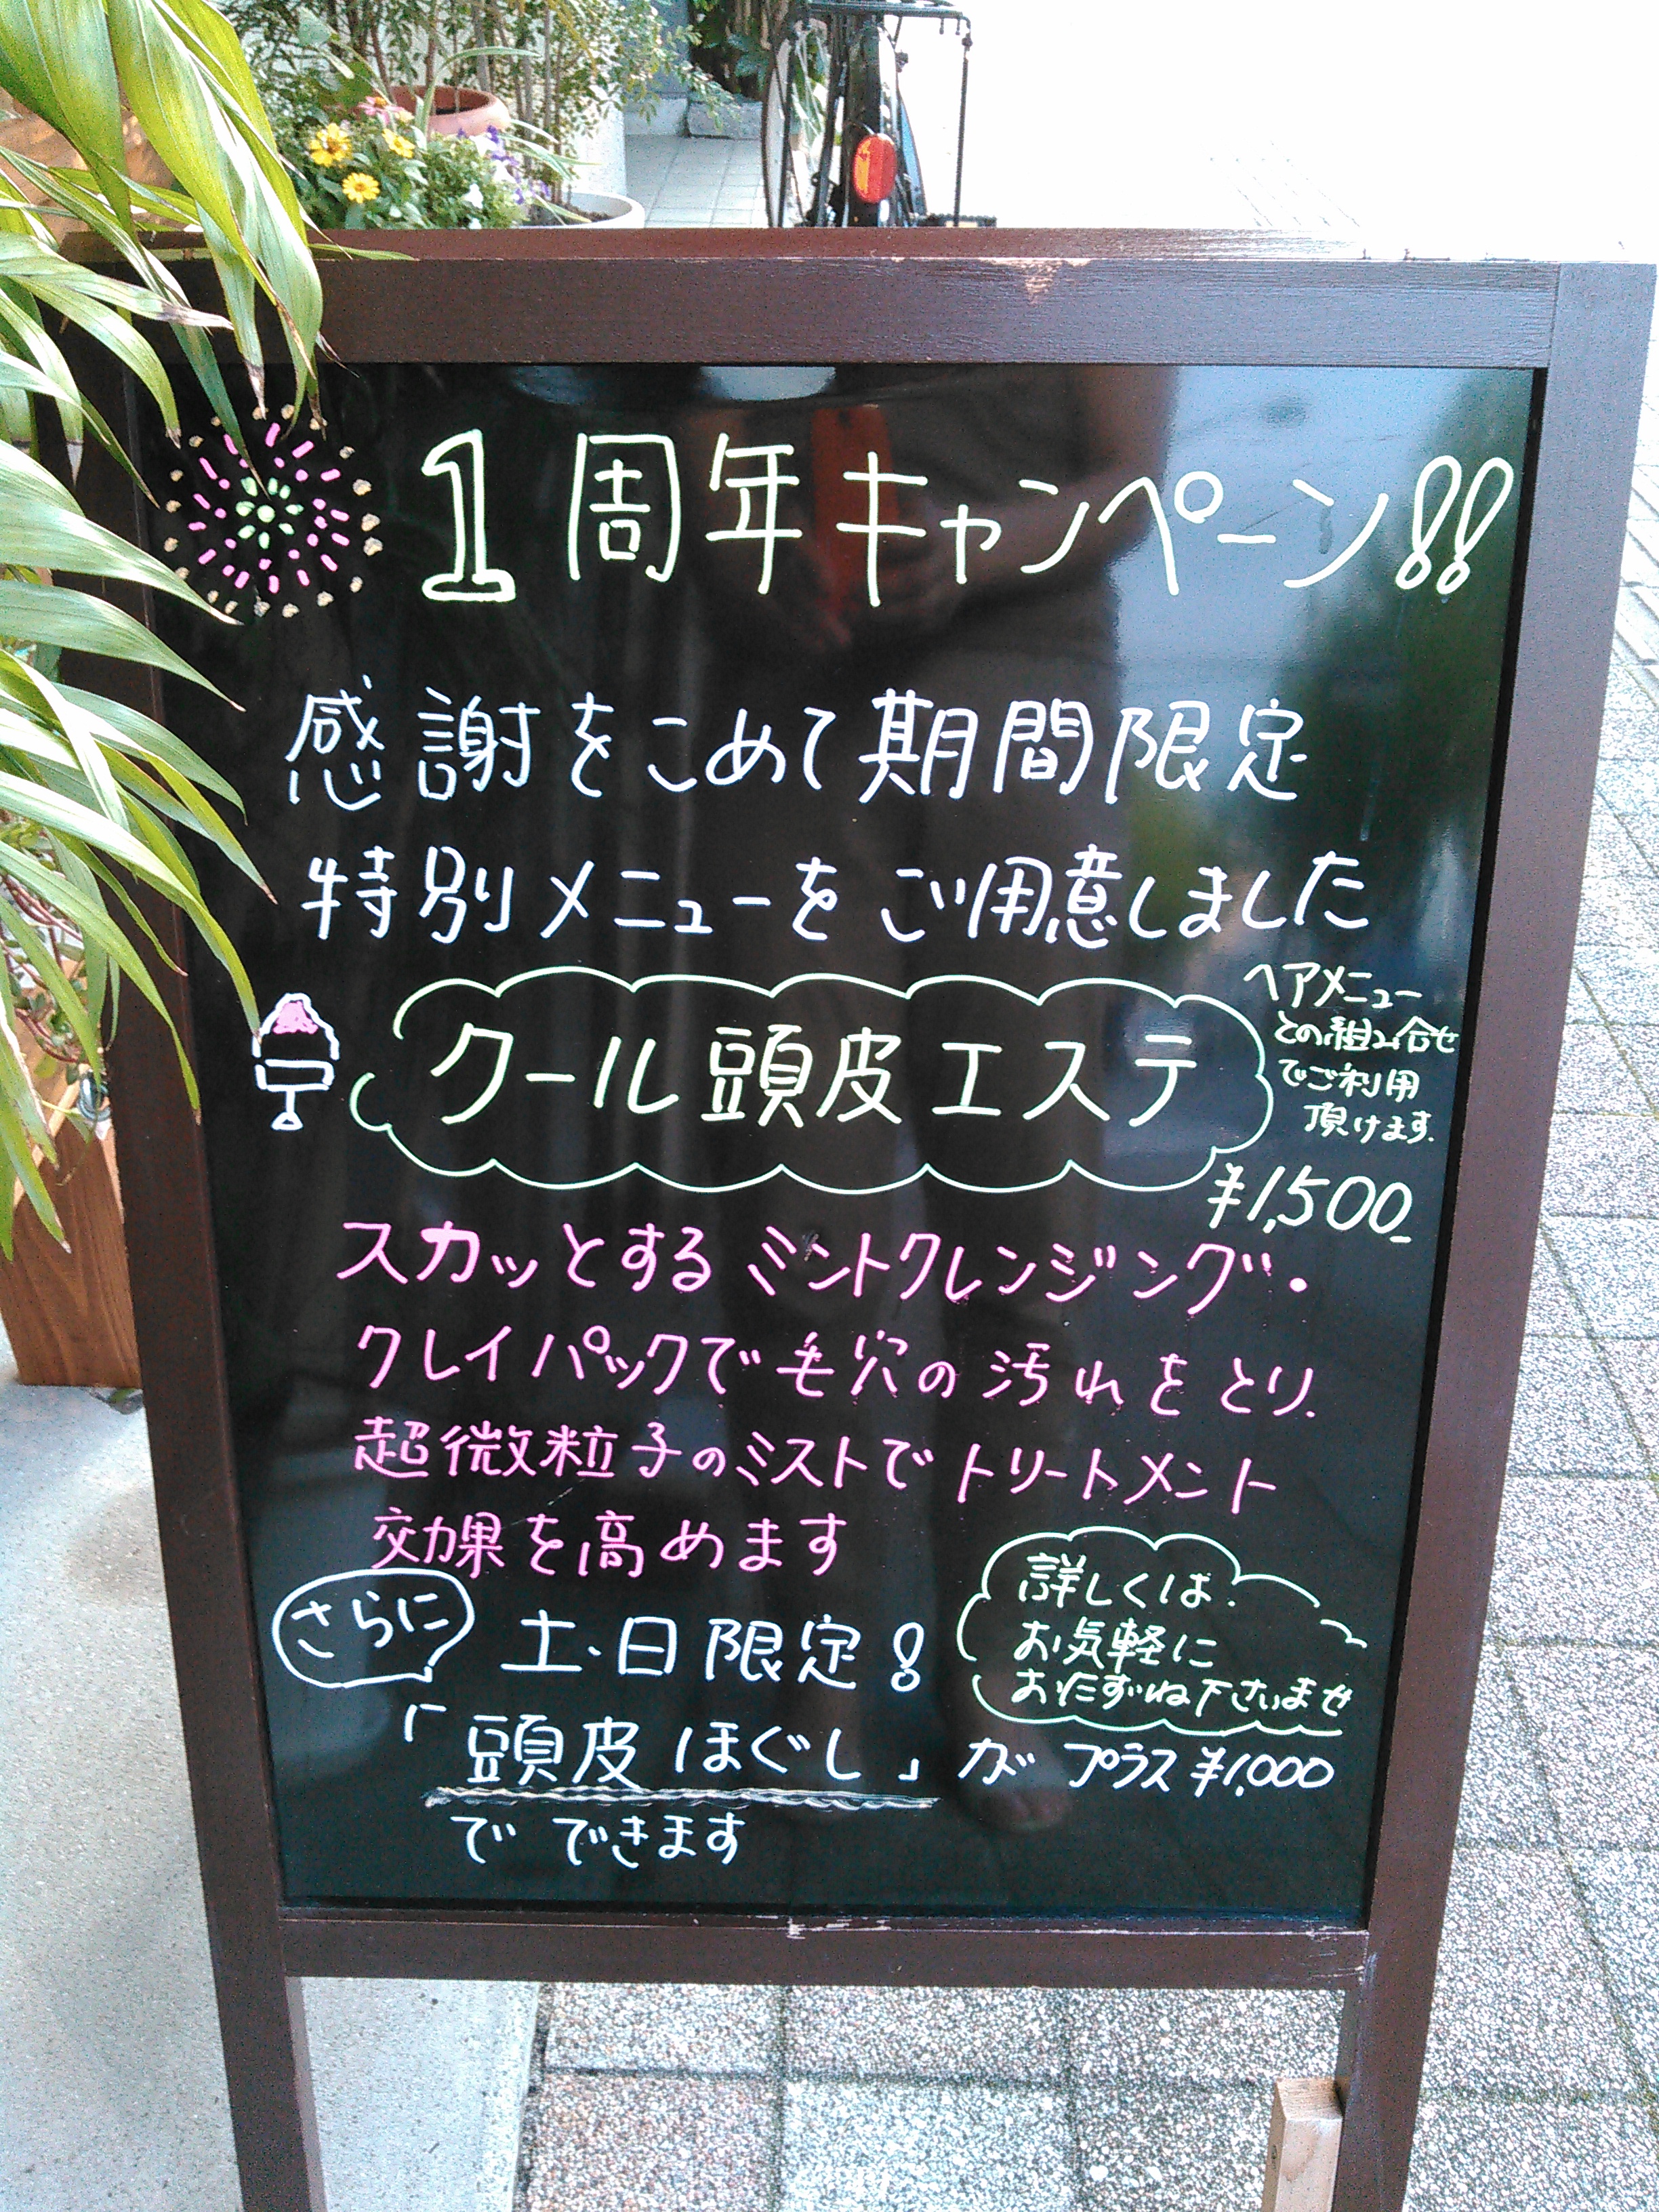 1周年キャンペーン!!
感謝をこめて期間限定
特別メニューをご用意しました
クール頭皮エステ
ヘアメニュー
との組み合せ
でご利用
頂けます.
¥1,500
スカッとするミントクレンジング・
クレイパックで毛穴の汚れをとり.
超微粒子のミストでトリートメント
効果を高めます
さらに
土・日限定!
詳しくは.
お気軽に
おたずね下さいませ
「頭皮ほぐし」が プラス¥1,000
で できます